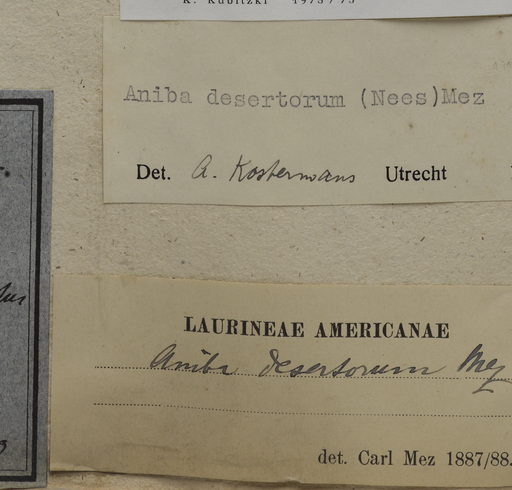 K. Kubitzki 1973/75
Aniba desertorum (Nees)Mez
Det. A. Kostermans Utrecht
LAURINEAE AMERICANAE
Aniba desertorum Mez
det. Carl Mez 1887/88.